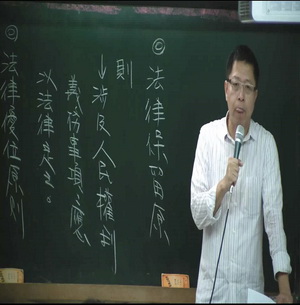 ㊁法律優位原則
ⓒ法律保留原
則
↓涉及人民權利
義務事項,應
以法律定之。